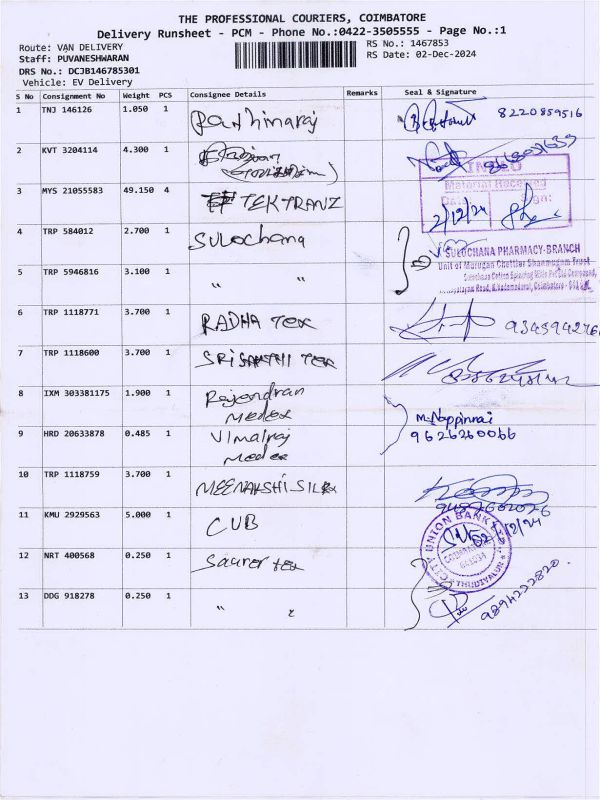 THE PROFESSIONAL COURIERS, COIMBATORE
Delivery Runsheet - PCM - Phone No.:0422-3505555 - Page No.:1
Route: VAN DELIVERY
RS No.: 1467853
Staff: PUVANESHWARAN
RS Date: 02-Dec-2024
DRS No.: DCJB146785301
Vehicle: EV Delivery
S No Consignment No Weight PCS Consignee Details Remarks Seal & Signature
1 TNJ 146126 1.050 1 8220859516
2 KVT 3204114 4.300 1
3 MYS 21055583 49.150 4 TEKTRANZ 2/12/24
Material Received
Sign:
4 TRP 584012 2.700 1 Sulochana
SULOCHANA PHARMACY-BRANCH
Unit of Murugan Chettiar Shanmugam Trust
5 TRP 5946816 3.100 1 " "
6 TRP 1118771 3.700 1 RADHA TEX
7 TRP 1118600 3.700 1 SRISAKTHI TEX
8 IXM 303381175 1.900 1 Rajendran
Medex
M. Nappinnai
9626260066
9 HRD 20633878 0.485 1 Vimalraj
Medex
10 TRP 1118759 3.700 1 MEENAKSHI SILK
11 KMU 2929563 5.000 1 CUB
CITY UNION BANK LTD
THUDIYALUR
12 NRT 400568 0.250 1 Saurer tex
13 DDG 918278 0.250 1 " " 9894222820